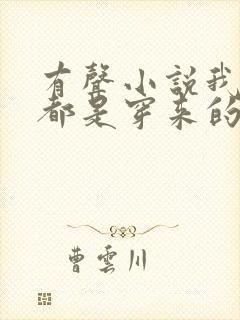 有聲小說我
都是穿來的
曹雲川